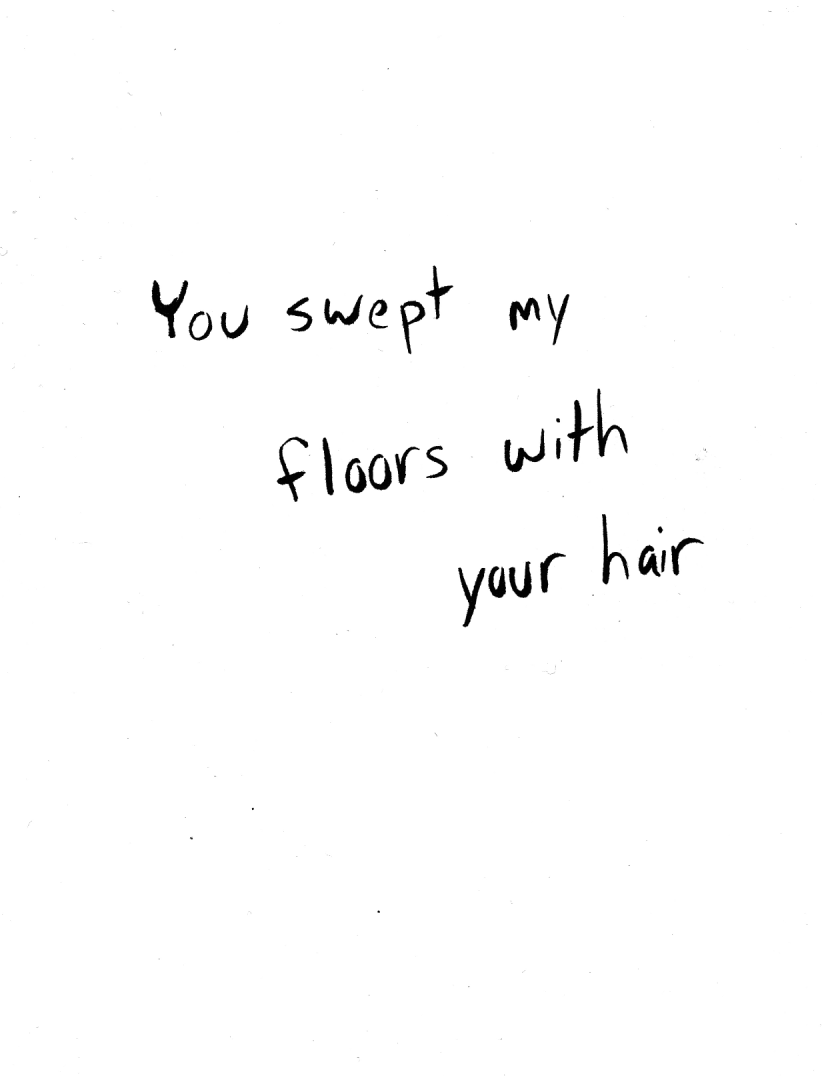 You swept my
floors with
your hair